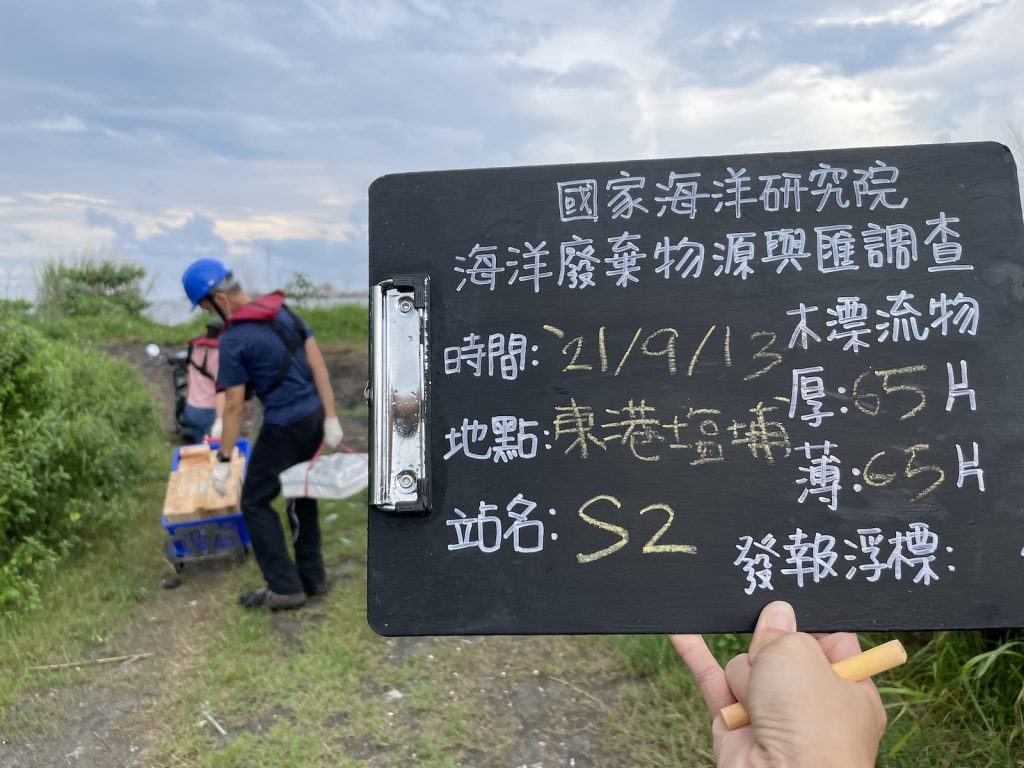 國家海洋研究院
海洋廢棄物源與匯調查
時間: '21/9/13
地點: 東港塩埔
站名: S2
木漂流物
厚: 65片
薄: 65片
發報浮標: